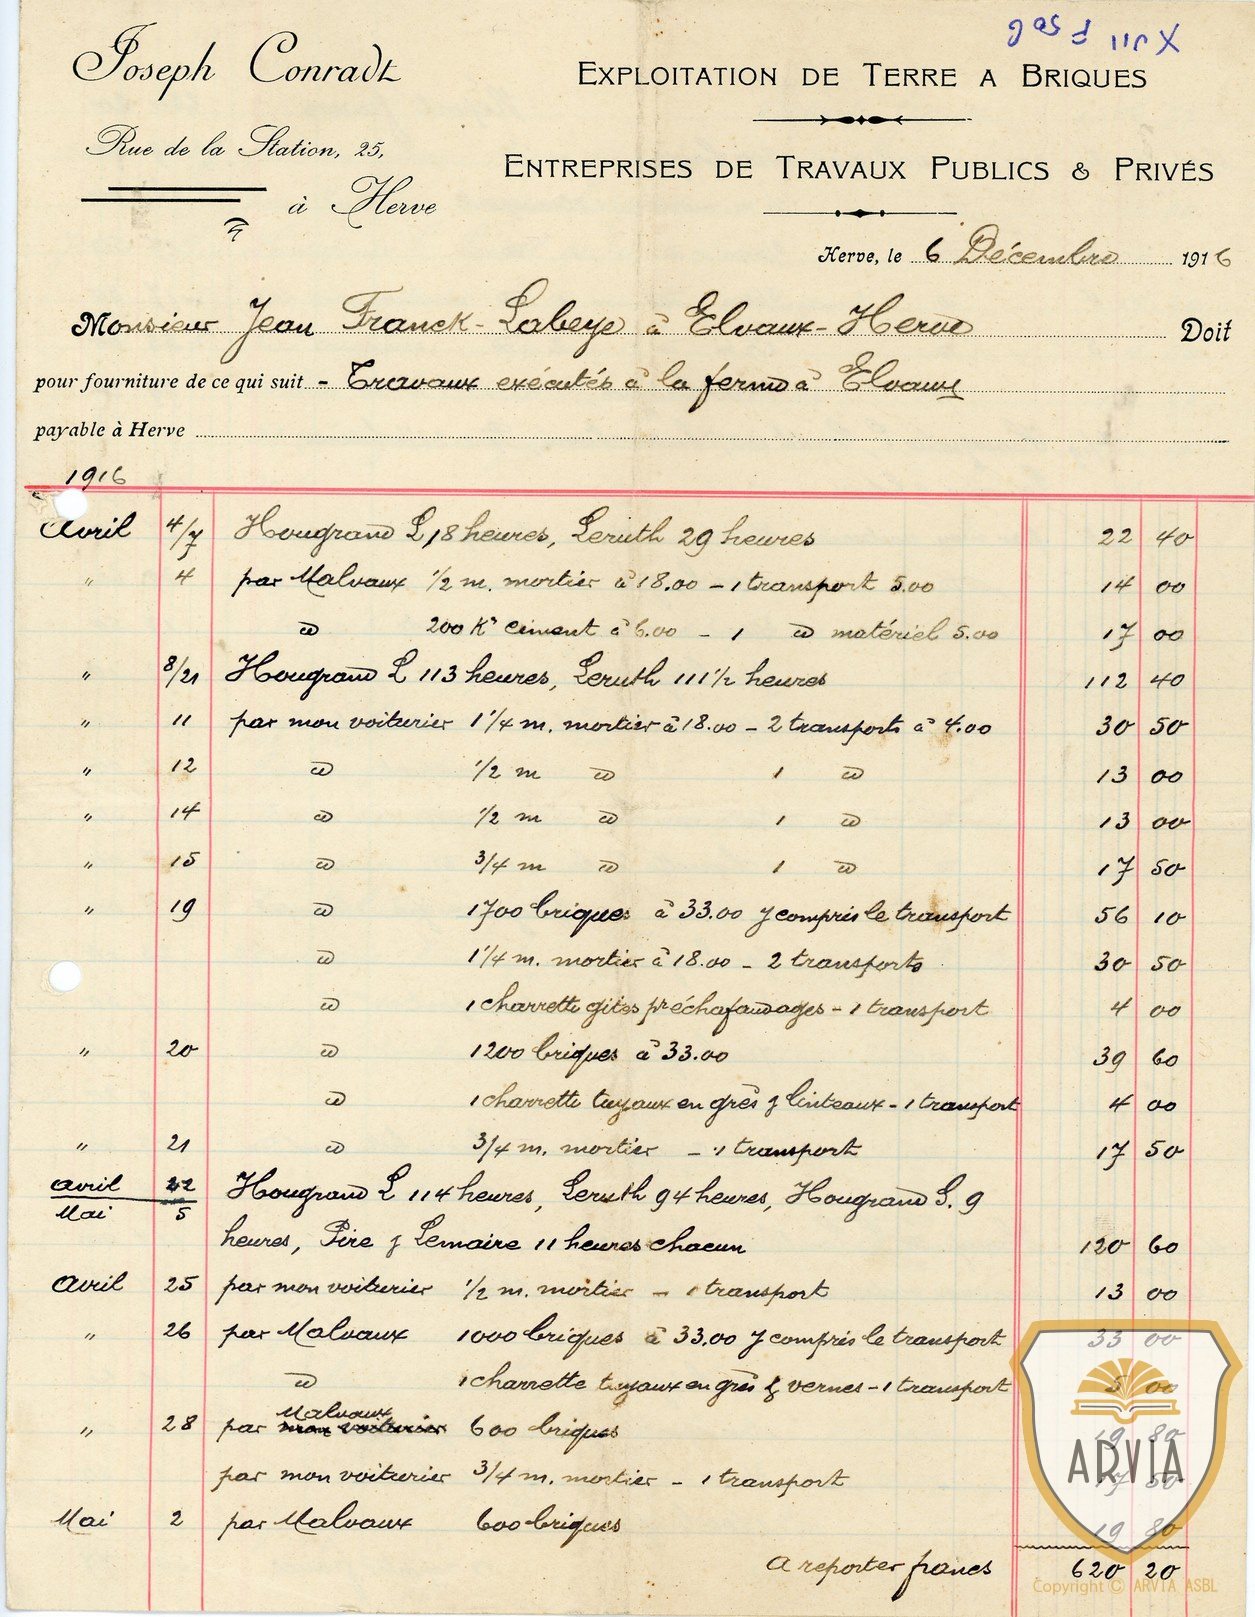 Joseph Conradt
EXPLOITATION DE TERRE A BRIQUES
Rue de la Station, 25,
à Herve
ENTREPRISES DE TRAVAUX PUBLICS & PRIVÉS
Herve, le 6 Décembre 1916
Monsieur Jean Franck-Labeye à Elvaux-Herve Doit
pour fourniture de ce qui suit - Travaux exécutés à la ferme à Elvaux
payable à Herve
1916
Avril 4/7 Hougrand L 18 heures, Leruth 29 heures 22 40
" 4 par Malvaux 1/2 m. mortier à 18.00 - 1 transport 5.00 14 00
d 200 Kos ciment à 6.00 - 1 d matériel 5.00 17 00
" 8/21 Hougrand L 113 heures, Leruth 111 1/2 heures 112 40
" 11 par mon voiturier 1 1/4 m. mortier à 18.00 - 2 transports à 4.00 30 50
" 12 d 1/2 m d 1 d 13 00
" 14 d 1/2 m d 1 d 13 00
" 15 d 3/4 m d 1 d 17 50
" 19 d 1700 briques à 33.00 y compris le transport 56 10
d 1 1/4 m. mortier à 18.00 - 2 transports 30 50
d 1 charrette gites pr échafaudages - 1 transport 4 00
" 20 d 1200 briques à 33.00 39 60
d 1 charrette tuyaux en grès & linteaux - 1 transport 4 00
" 21 d 3/4 m. mortier - 1 transport 17 50
Avril 22 Hougrand L 114 heures, Leruth 94 heures, Hougrand G. 9
Mai 5
heures, Pire & Lemaire 11 heures chacun 120 60
Avril 25 par mon voiturier 1/2 m. mortier - 1 transport 13 00
" 26 par Malvaux 1000 briques à 33.00 y compris le transport 33 00
d 1 charrette tuyaux en grès & vernes - 1 transport 5 00
" 28 par Malvaux 600 briques 19 80
par mon voiturier 3/4 m. mortier - 1 transport 17 50
Mai 2 par Malvaux 600 briques 19 80
A reporter francs 620 20
ARVIA
Copyright © ARVIA ASBL